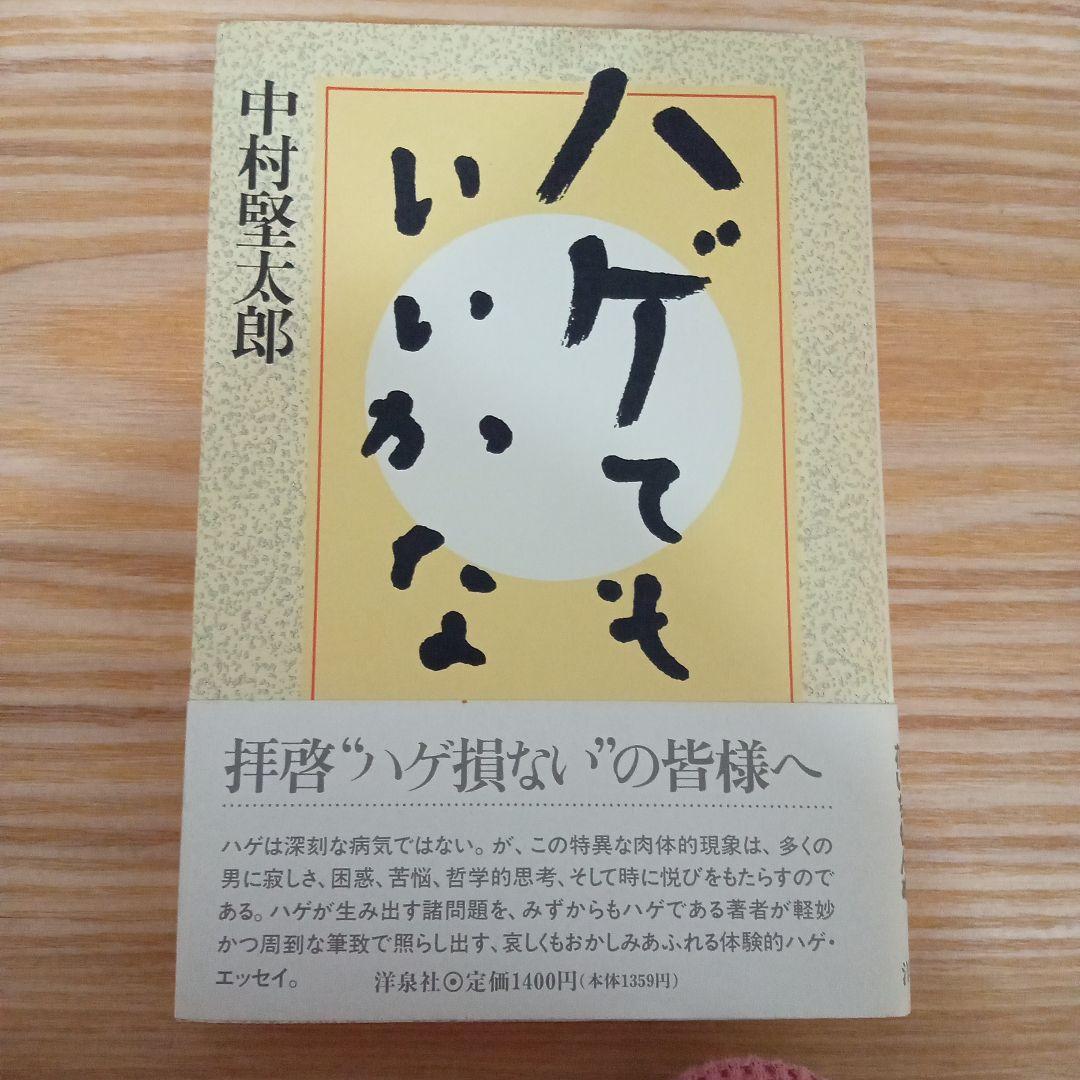 ハゲても
いいかな
中村堅太郎
拝啓“ハゲ損ない”の皆様へ
ハゲは深刻な病気ではない。が、この特異な肉体的現象は、多くの
男に寂しさ、困惑、苦悩、哲学的思考、そして時に悦びをもたらすので
ある。ハゲが生み出す諸問題を、みずからもハゲである著者が軽妙
かつ周到な筆致で照らし出す、哀しくもおかしみあふれる体験的ハゲ・
エッセイ。
洋泉社◉定価1400円(本体1359円)